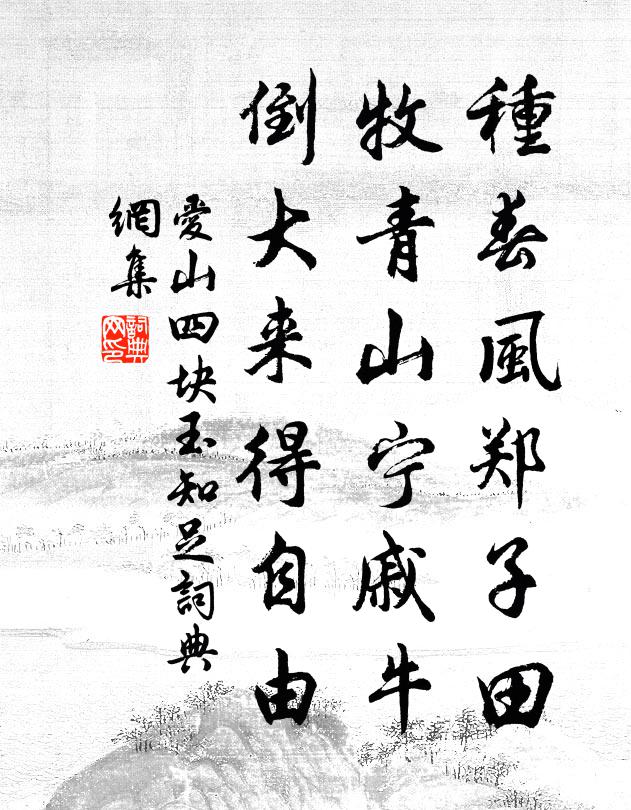 種春風郑子田
牧青山宁戚牛
倒大来得自由
愛山四块玉知足詞典
網集
詞典
网印